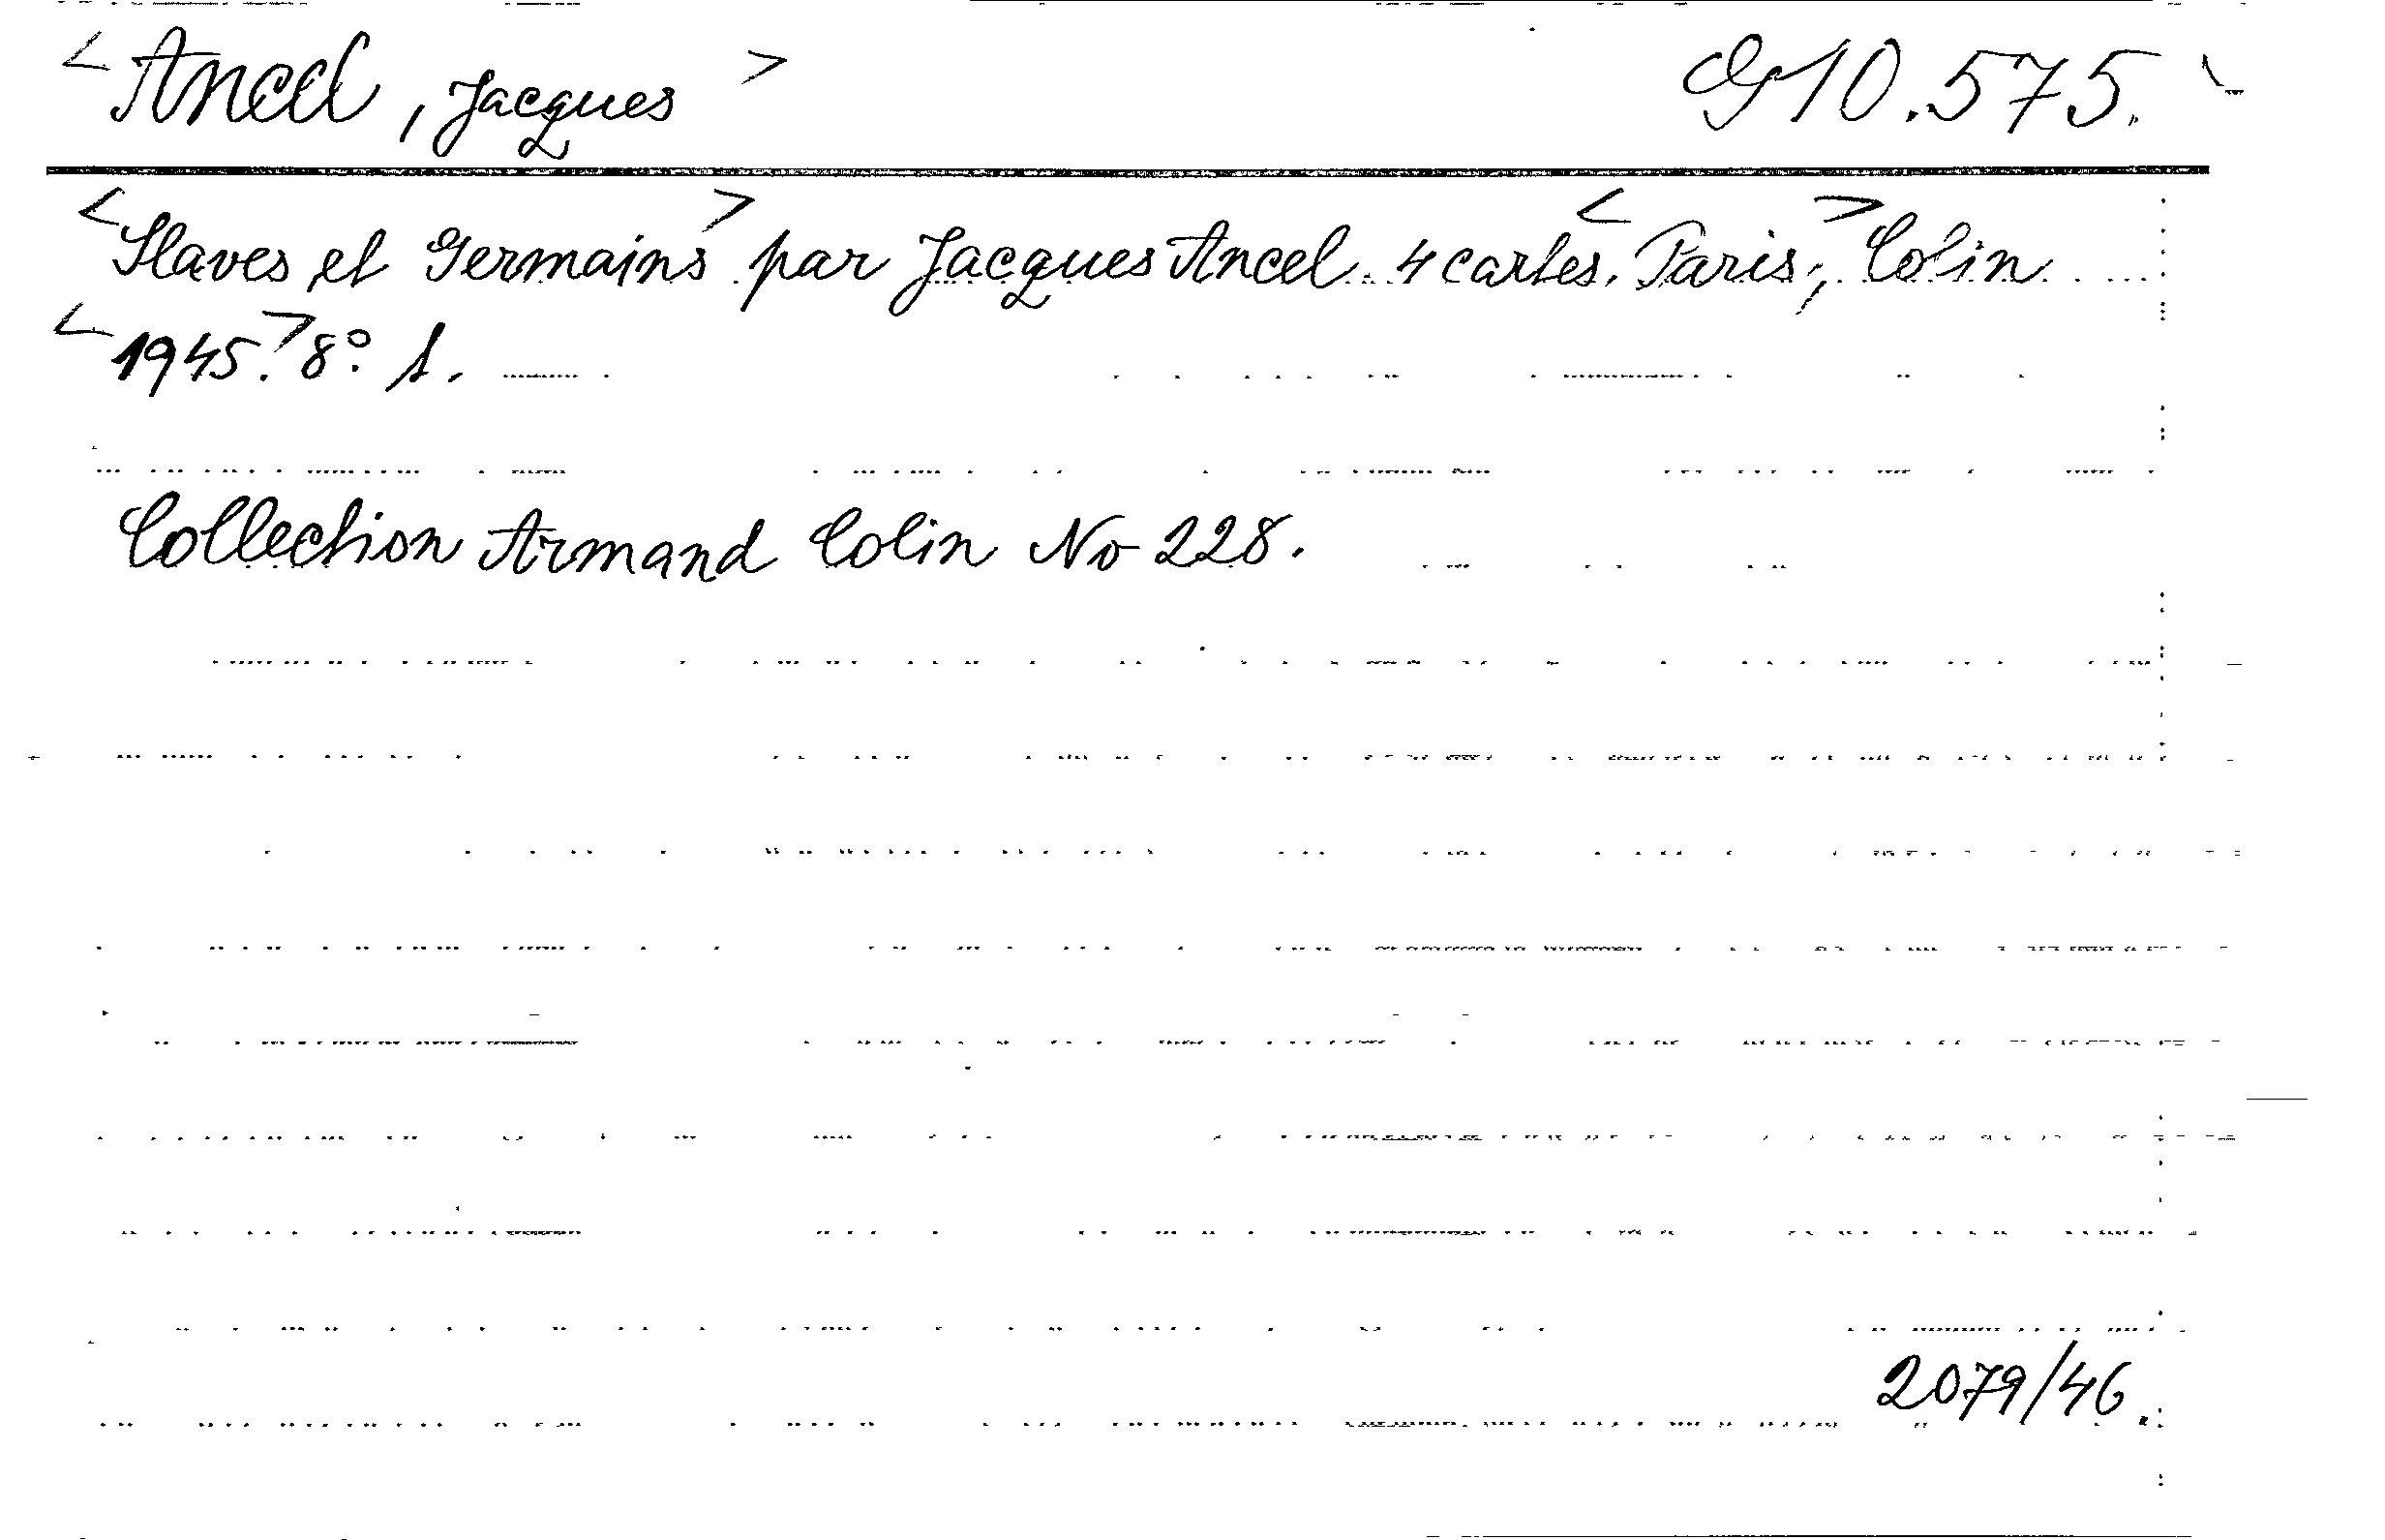 <Ancel, Jacques> G 10.575.
<Slaves et Germains> par Jacques Ancel. 4 cartes. <Paris,> Colin
<1945.> 8° 1.
Collection Armand Colin No 228.
2079/46.